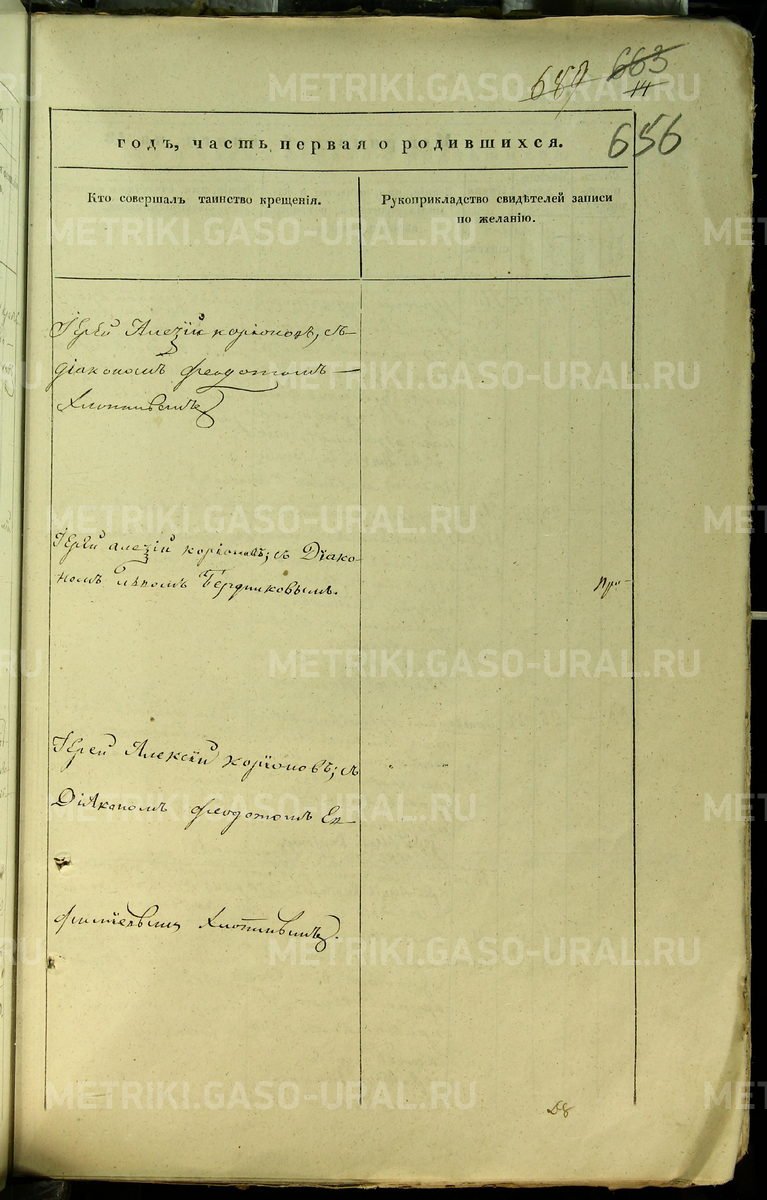 663
14
656
годъ, часть первая о родившихся.
Кто совершалъ таинство крещенія.
Рукоприкладство свидѣтелей записи
по желанію.
Іерей Алезій коріоновъ, съ
діакономъ феодотомъ
Хлопинымъ
Іерей алезій коріоновъ; съ Діако-
номъ Бердниковымъ.
При-
Іерей Алексій коріоновъ; съ
Діакономъ феодотомъ Еп-
Хлопинымъ.
METRIKI.GASO-URAL.RU